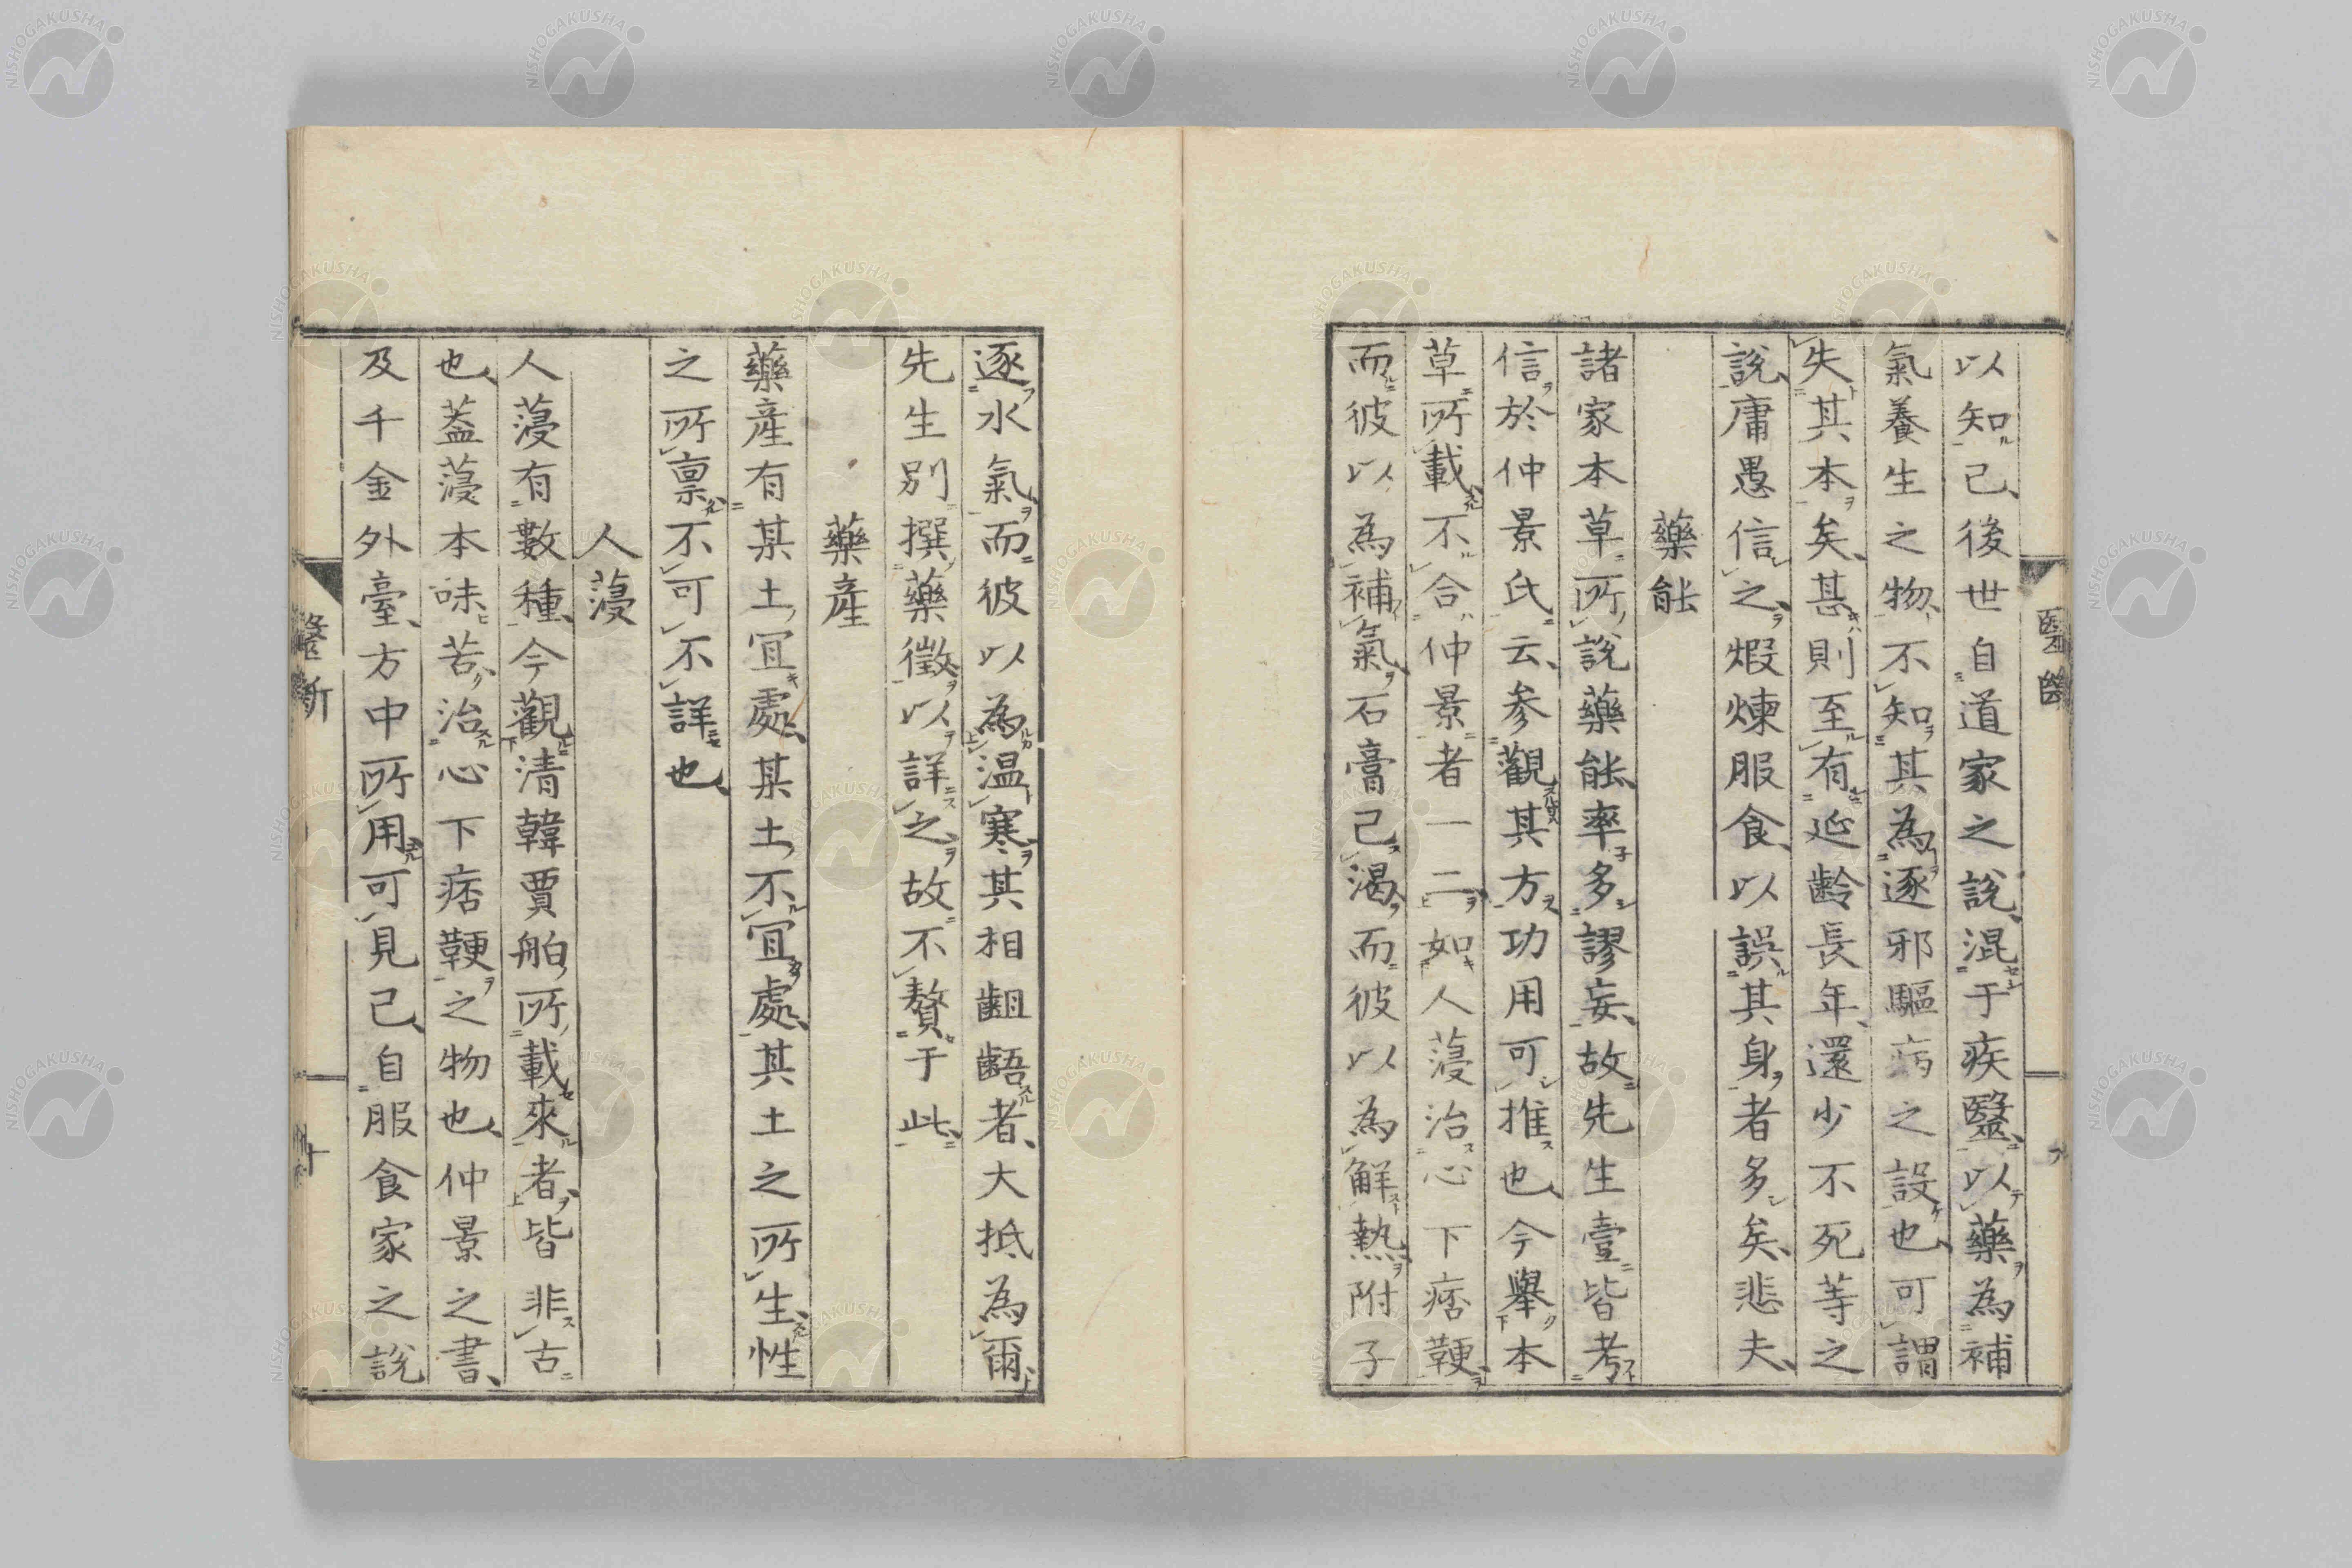 以知己後世自道家之說混于疾醫以藥為補
氣養生之物不知其為逐邪驅病之設也可謂
失其本矣甚則至有延齡長年還少不死等之
說庸愚信之煆煉服食以誤其身者多矣悲夫
藥能
諸家本草所說藥能率多謬妄故先生壹皆考
信於仲景氏云參觀其方功用可推也今舉本
草所載不合仲景者一二如人葠治心下痞鞕
而彼以為補氣石膏已渴而彼以為解熱附子
逐水氣而彼以為温寒其相齟齬者大抵為爾
先生別撰藥徵以詳之故不贅于此
藥產
藥產有某土宜處某土不宜處其土之所生性
之所禀不可不詳也
人葠
人葠有數種今觀清韓賈舶所載來者皆非古
也葢葠本味苦治心下痞鞕之物也仲景之書
及千金外臺方中所用可見已自服食家之說
醫斷
十
NISHOGAKUSHA